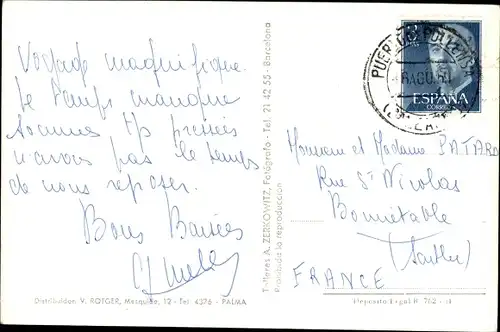 Voyage magnifique.
Le temps manque
sommes tp pressées
n'avons pas le temps
de nous reposer.
Bons Baisers
Distribuidor: V. ROTGER, Mesquida, 12 - Tel. 4376 - PALMA
Talleres A. ZERKOWITZ, Fotógrafo - Tel. 21 42 55 - Barcelona
Prohibida la reproducción
PUERTO DE POLLENSA
AGO
ESPAÑA
CORREOS
Monsieur et Madame PATARD
Rue St Nicolas
Bonnétable
(Sarthe)
FRANCE
Depósito Legal B. 762